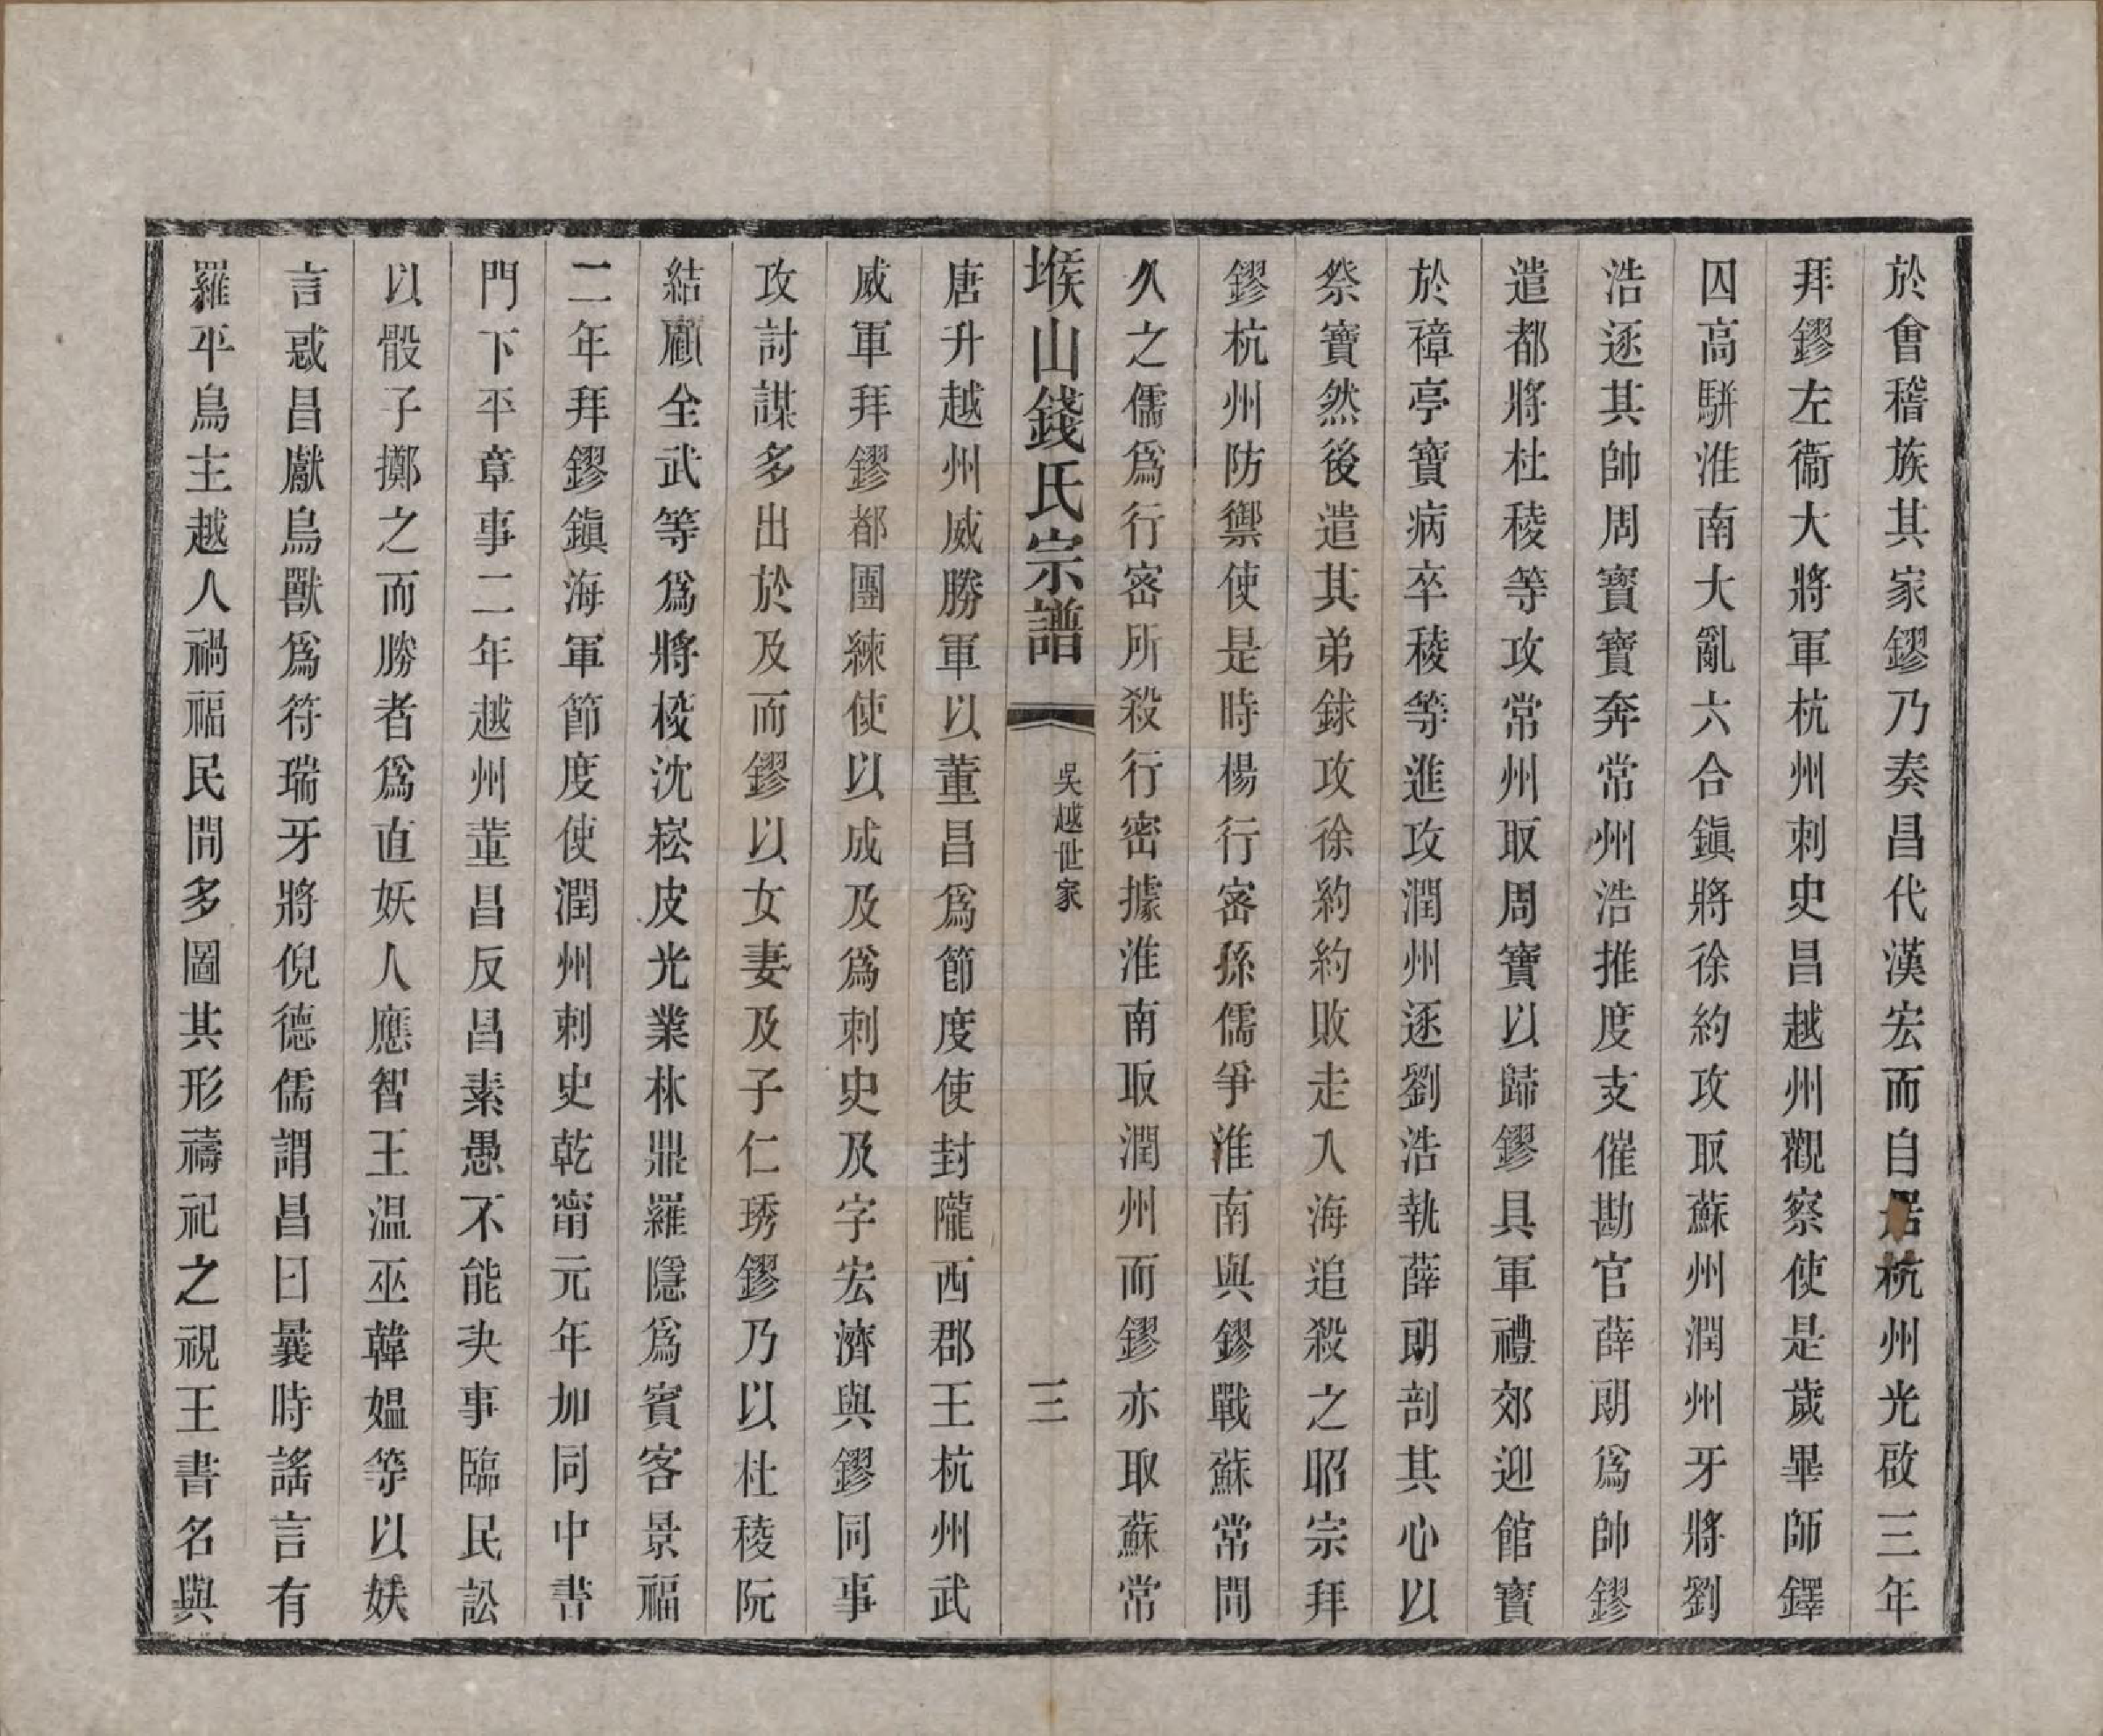 於會稽族其家鏐乃奏昌代漢宏而自居杭州光啟三年
拜鏐左衞大將軍杭州刺史昌越州觀察使是歲畢師鐸
囚高駢淮南大亂六合鎭將徐約攻取蘇州潤州牙將劉
浩逐其帥周寶寶奔常州浩推度支催勘官薛朗爲帥鏐
遣都將杜稜等攻常州取周寶以歸鏐具軍禮郊迎館寶
於樟亭寶病卒稜等進攻潤州逐劉浩執薛朗剖其心以
祭寶然後遣其弟銶攻徐約約敗走入海追殺之昭宗拜
鏐杭州防禦使是時楊行密孫儒爭淮南與鏐戰蘇常間
久之儒爲行密所殺行密據淮南取潤州而鏐亦取蘇常
堠山錢氏宗譜 吳越世家 三
唐升越州威勝軍以董昌爲節度使封隴西郡王杭州武
威軍拜鏐都團練使以成及爲刺史及字宏濟與鏐同事
攻討謀多出於及而鏐以女妻及子仁琇鏐乃以杜稜阮
結顧全武等爲將校沈崧皮光業林鼎羅隱爲賓客景福
二年拜鏐鎭海軍節度使潤州刺史乾甯元年加同中書
門下平章事二年越州董昌反昌素愚不能決事臨民訟
以骰子擲之而勝者爲直妖人應智王温巫韓媪等以妖
言惑昌獻鳥獸爲符瑞牙將倪德儒謂昌曰曩時謠言有
羅平鳥主越人禍福民間多圖其形禱祀之視王書名與